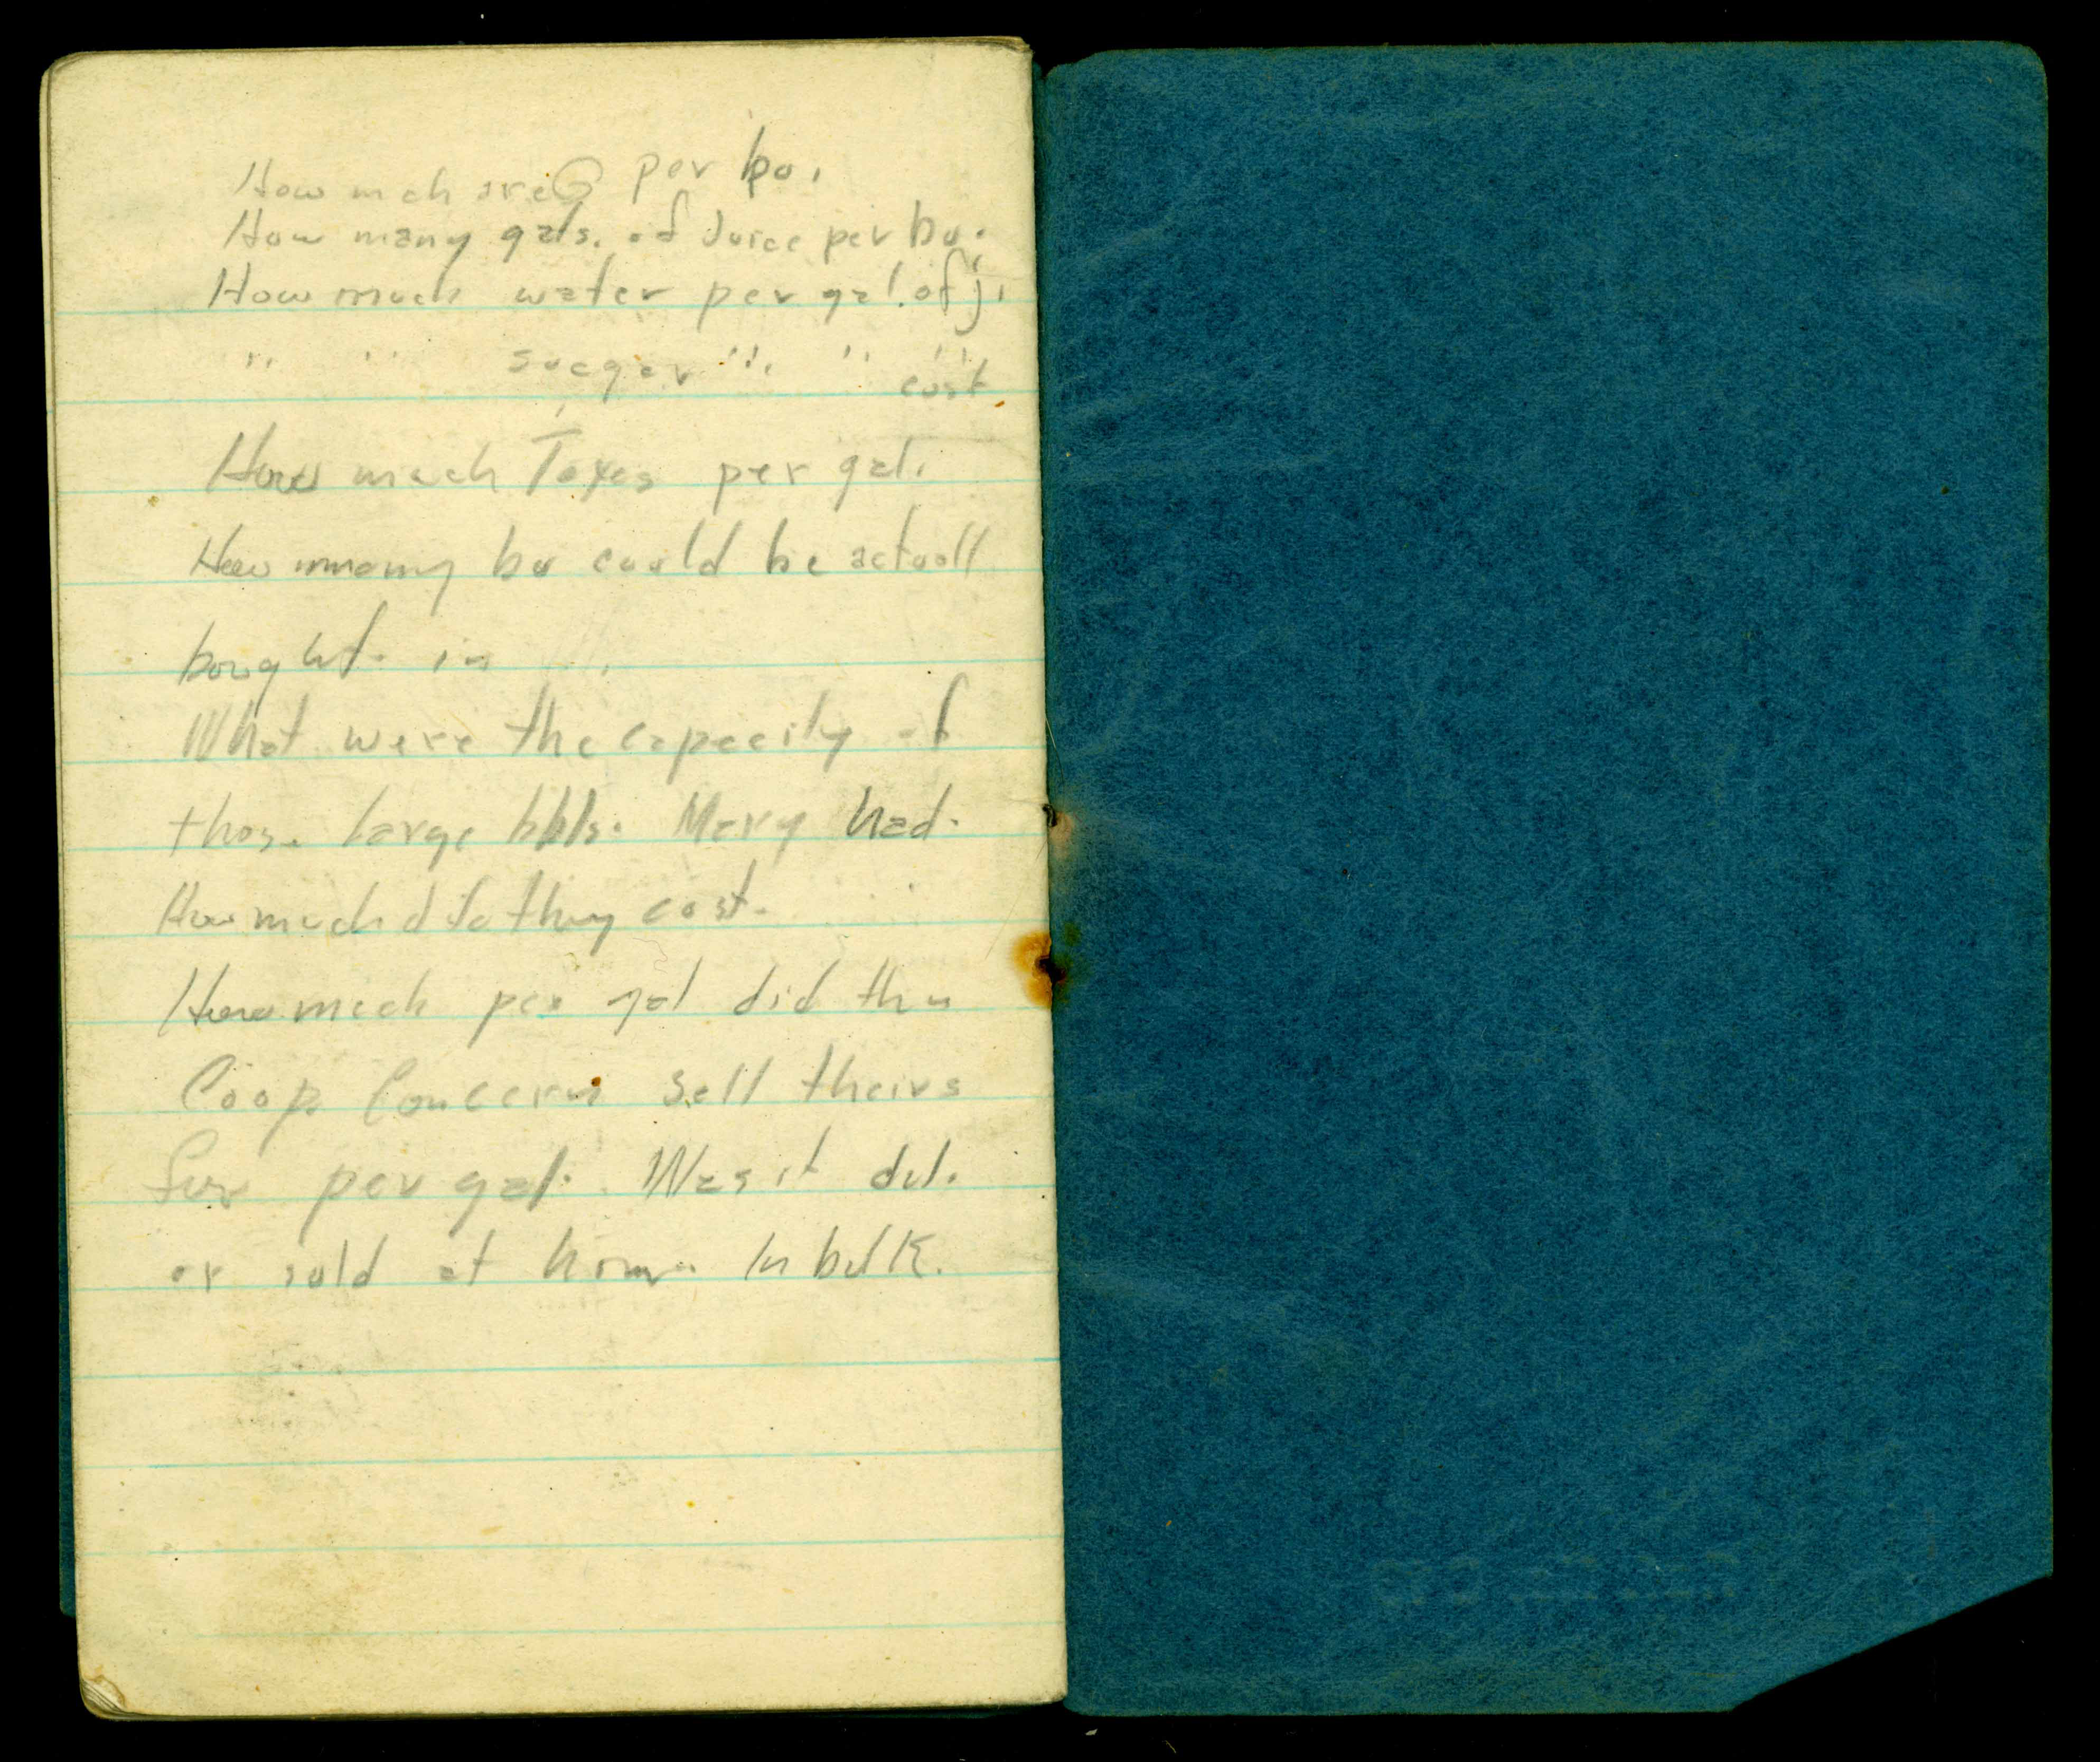 How mch are per bu.
How many gals. of Juice per bu.
How much water per gal. of j.
" " suegar " " "
cost
How much Taxes per gal.
How mmany bu could be actuall
bought in
What were the capecity of
thos. large bbls. Mary had.
How much did they cost.
How much per gal did the
Coop. Concern sell theirs
for per gal. Was it del.
or sold at home In bulk.